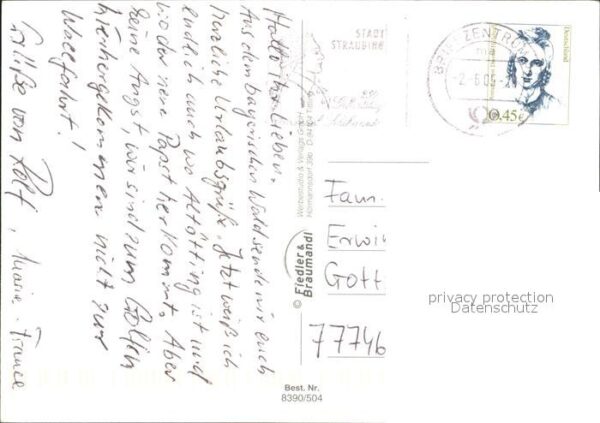 Hallo Ihr Lieben,
Aus dem bayerischen Wald senden wir euch
herzliche Urlaubsgrüße. Jetzt weiß ich
endlich auch wo Altötting ist und
wo der neue Papst herkommt. Aber
keine Angst, wir sind zum Golfen
hierhergekommen nicht zur
Wallfahrt!
Grüße von Rolf, Marie-France
Werbestudio & Verlags GmbH
© Fiedler &
Braumandl
STADT
STRAUBING
BRIEFZENTRUM
-2.-6.05
Deutschland
0,45€
Fam.
Erwin
Gott
77746
privacy protection
Datenschutz
Best. Nr.
8390/504